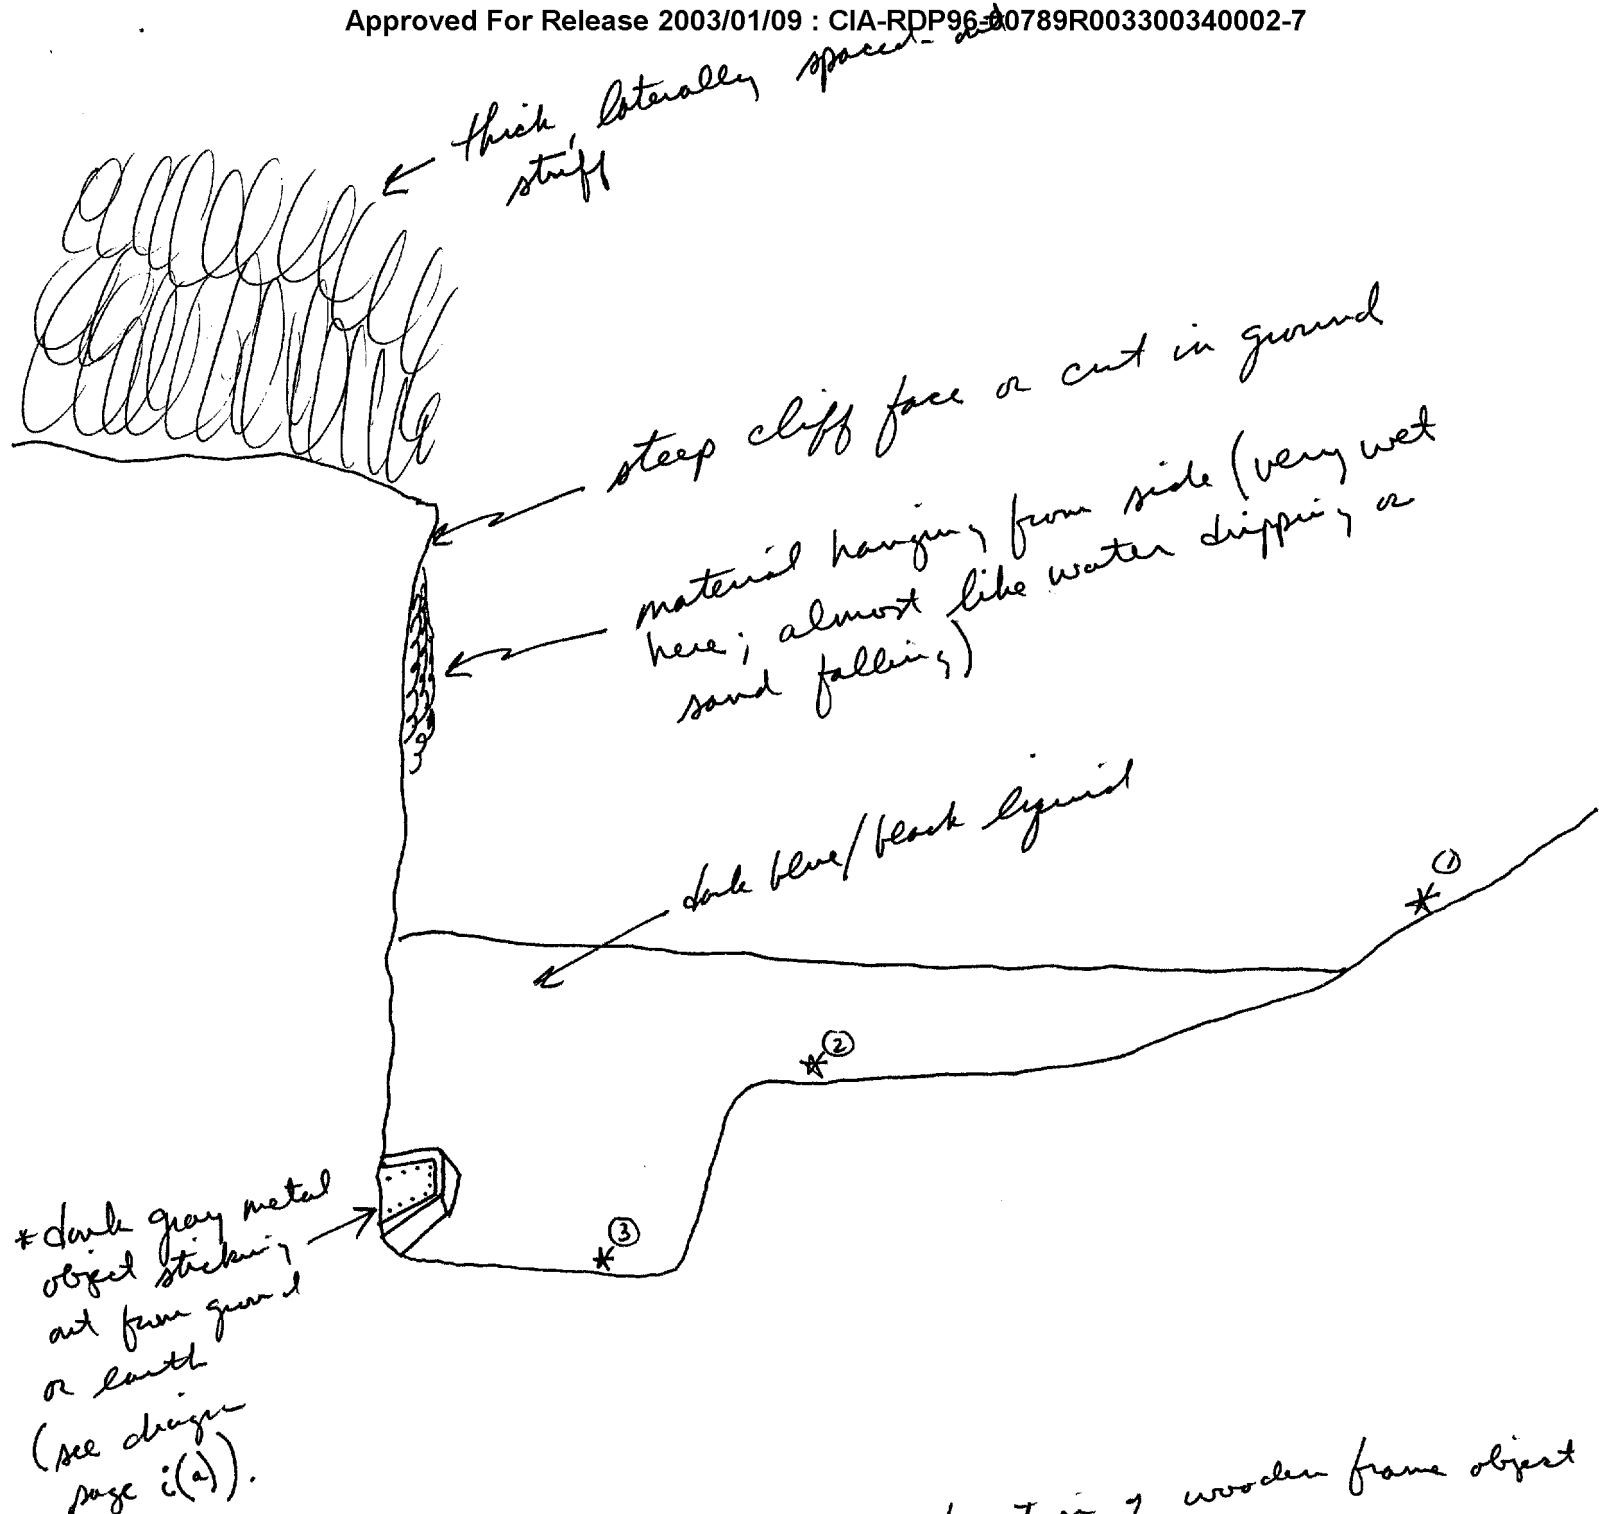 Approved For Release 2003/01/09 : CIA-RDP96-00789R003300340002-7
thick, laterally spaced-out
stuff
steep cliff face or cut in ground
material hanging from side (very wet
here; almost like water dripping or
sand falling)
dark blue/black liquid
1
2
3
* dark gray metal
object sticking
out from ground
or earth
(see
page i(a)).
wooden frame object